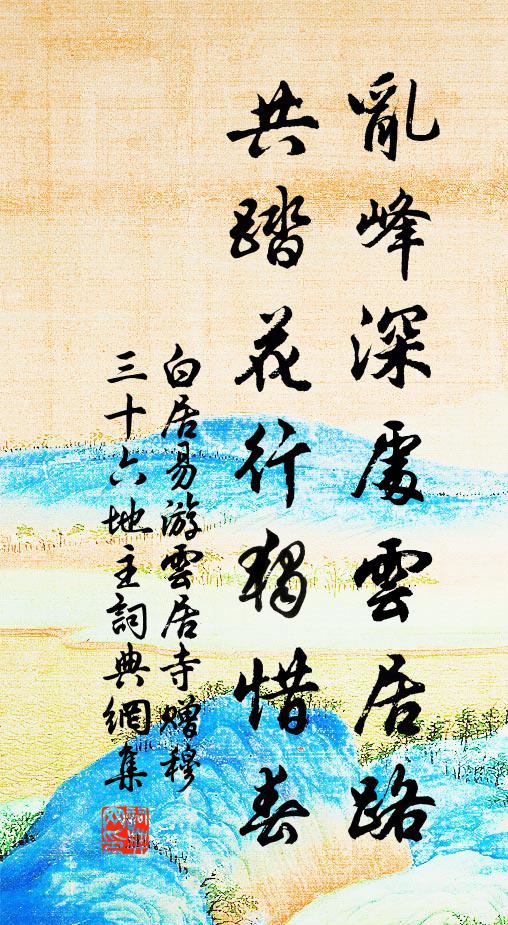 亂峰深處雲居路
共踏花行獨惜春
白居易游雲居寺贈穆
三十六地主詞典網集